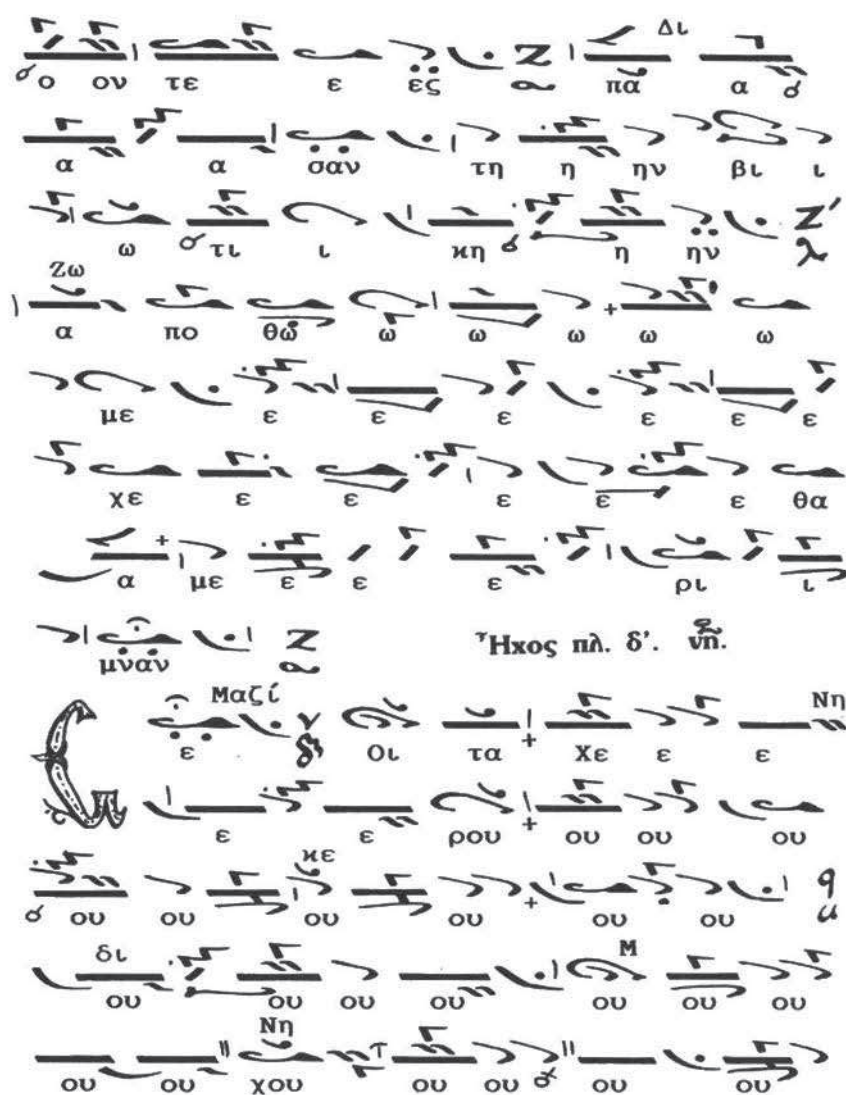 Δι
ο ον τε ε ες Ζ πα α
α α σαν τη η ην βι ι
ω τι ι κη η ην Ζ'
Ζω
α πο θω ω ω ω ω ω
με ε ε ε ε ε ε
χε ε ε ε ε ε θα
α με ε ε ε ρι ι
μναν Ζ Ἦχος πλ. δ'. νη.
Μαζί Νη
ε Οι τα Χε ε ε
ε ε ρου ου ου ου
κε
ου ου ου ου ου ου ου q
δι Μ
ου ου ου ου ου ου ου
Νη
ου ου χου ου ου ου ου